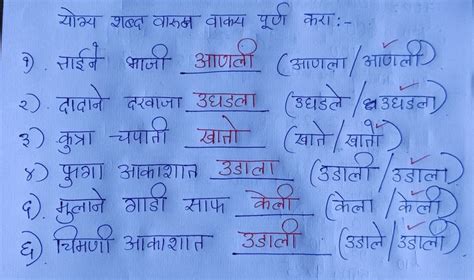 योग्य शब्द वापरून वाक्य पूर्ण करा :-
१) ताईने भाजी आणली (आणला / आणली)
२) दादाने दरवाजा उघडला (उघडले / उघडला)
३) कुत्रा चपाती खातो (खाते / खातो)
४) फुगा आकाशात उडाला (उडाली / उडाला)
५) मुलाने गाडी साफ केली (केला / केली)
६) चिमणी आकाशात उडाली (उडाले / उडाली)